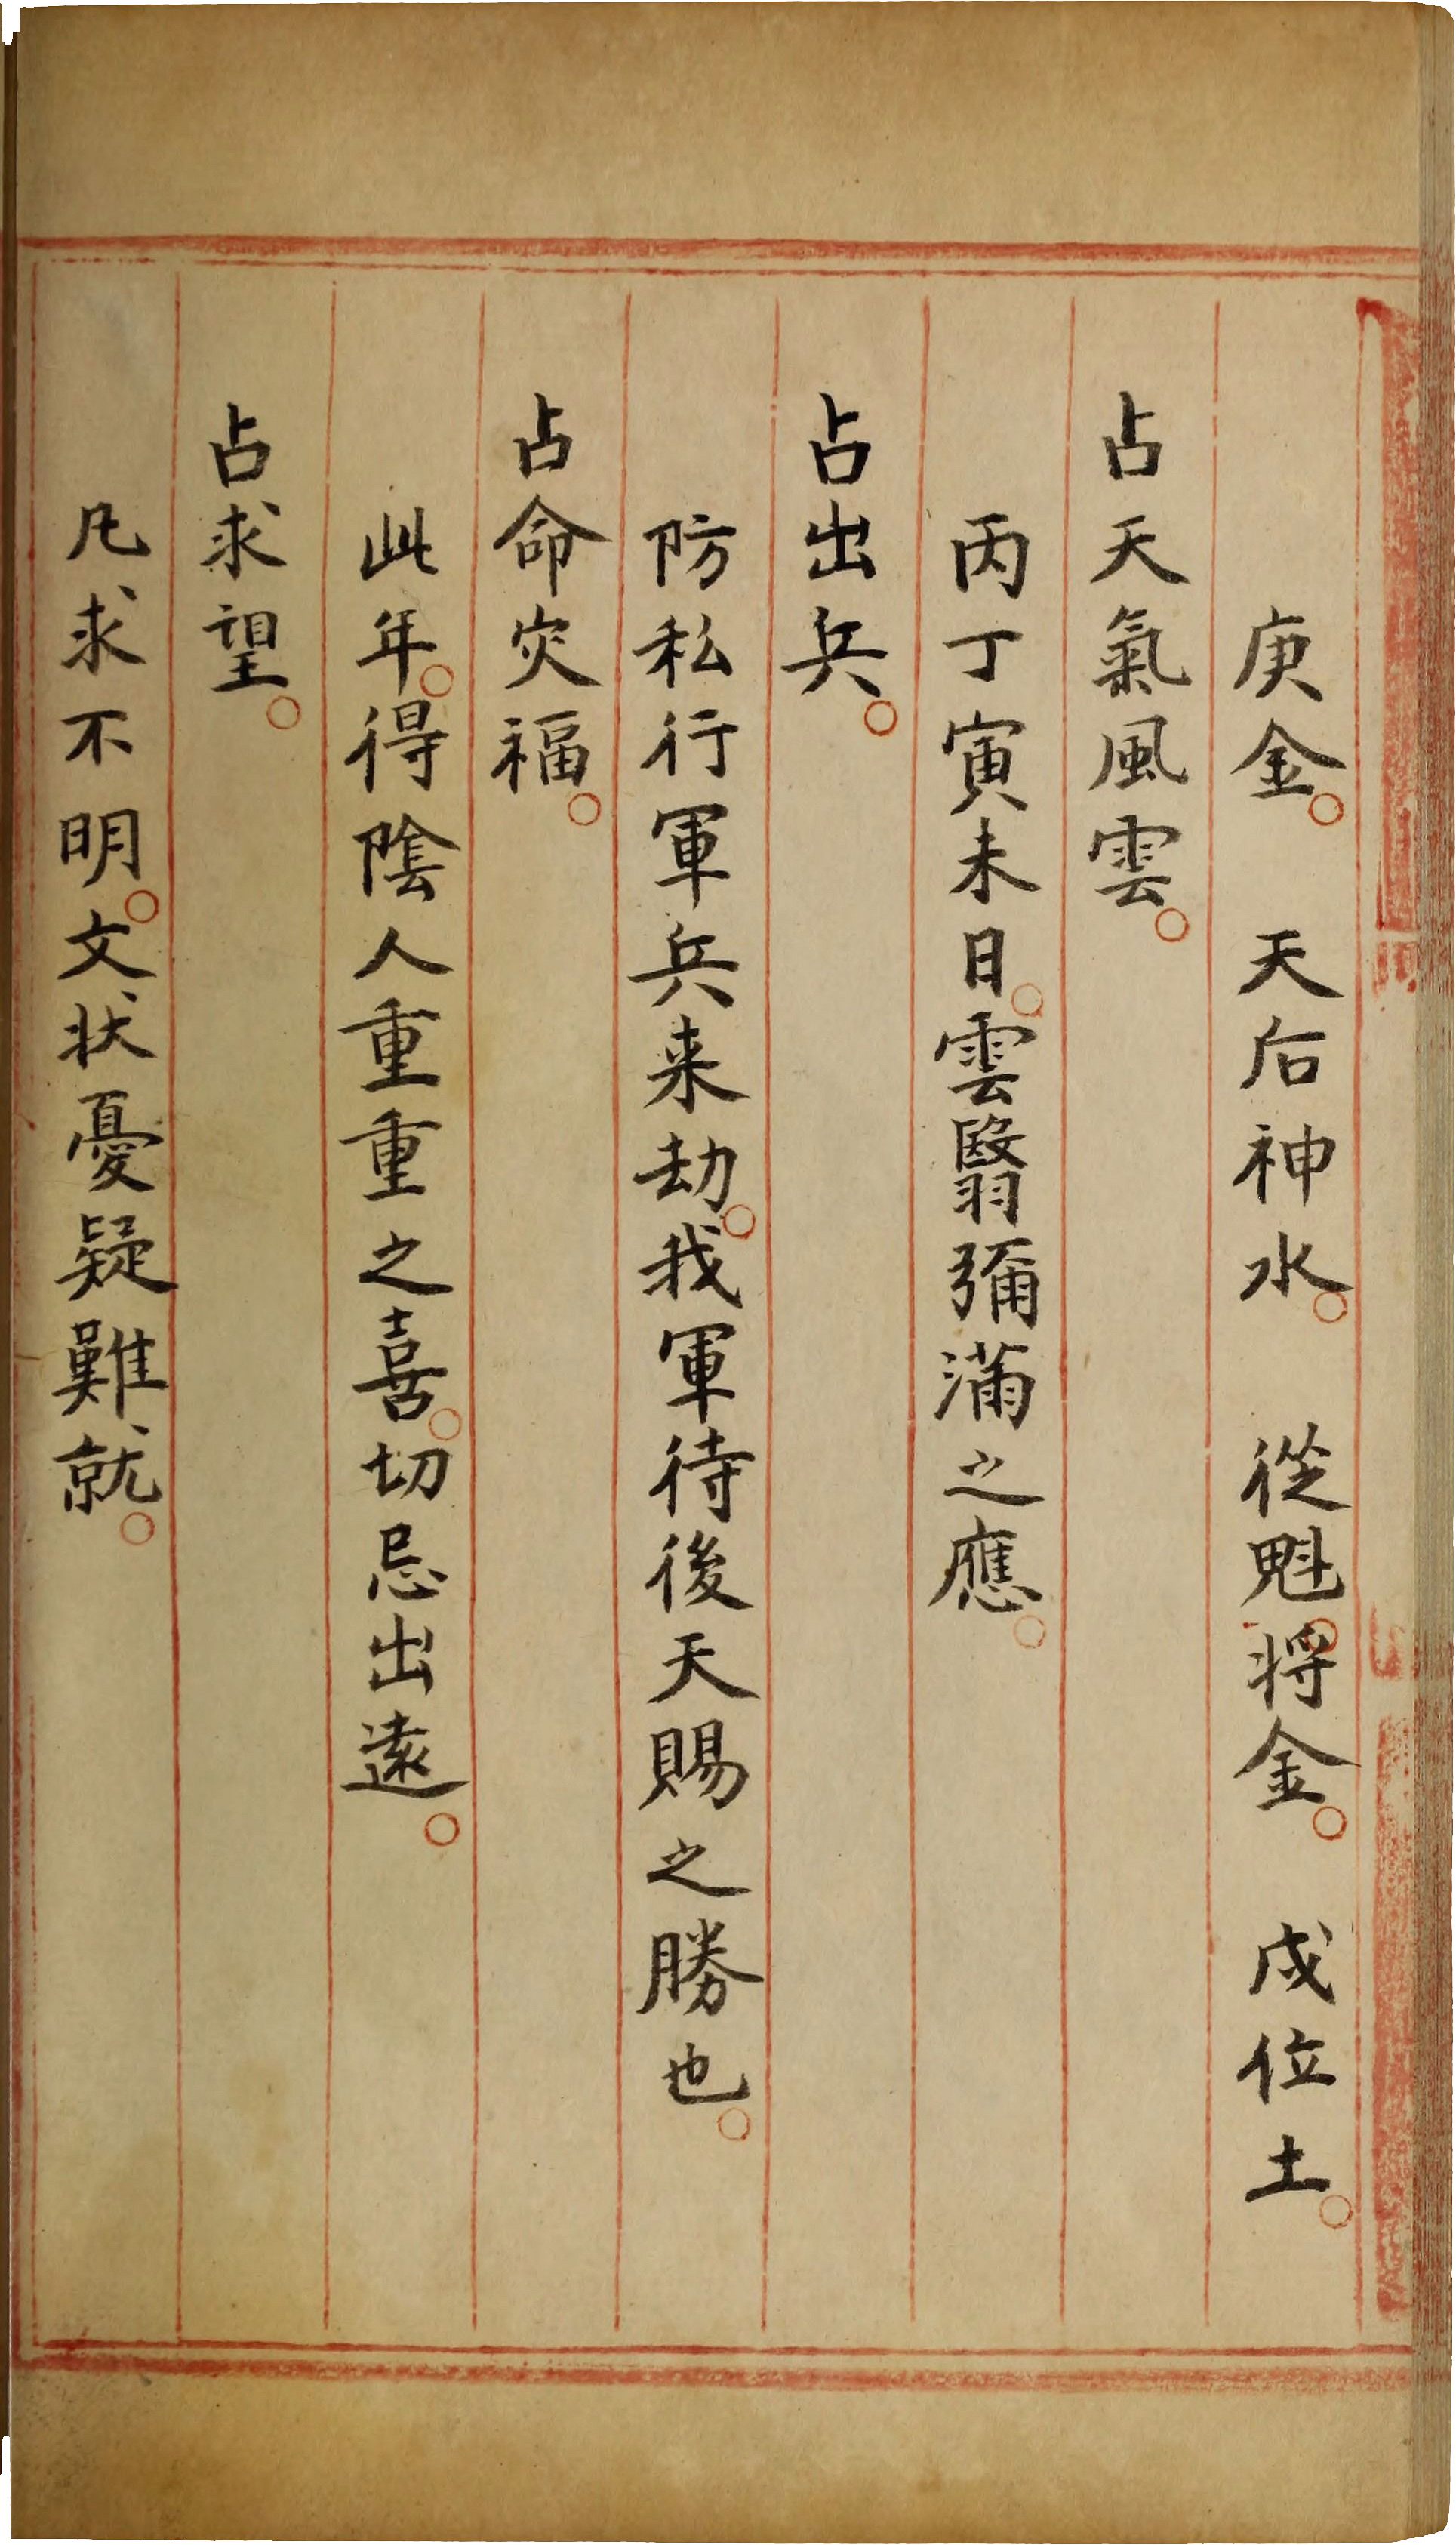 庚金。　天后神水。　從魁。將金。　戌位土。
占天氣風雲。
丙丁寅未日。雲翳彌滿之應。
占出兵。
防私行軍兵来劫。我軍待後天賜之勝也。
占命灾福。
此年。得陰人重重之喜。切忌出遠。
占求望。
凡求不明。文状憂疑難就。